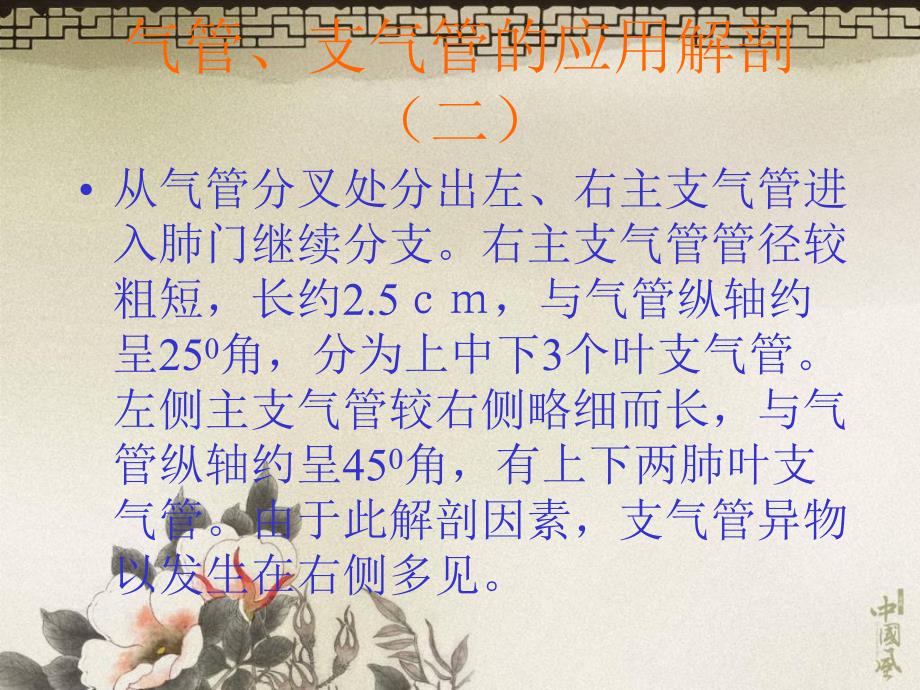 气管、支气管的应用解剖
（二）
• 从气管分叉处分出左、右主支气管进
入肺门继续分支。右主支气管管径较
粗短，长约2.5ｃｍ，与气管纵轴约
呈25⁰角，分为上中下3个叶支气管。
左侧主支气管较右侧略细而长，与气
管纵轴约呈45⁰角，有上下两肺叶支
气管。由于此解剖因素，支气管异物
以发生在右侧多见。
中國風